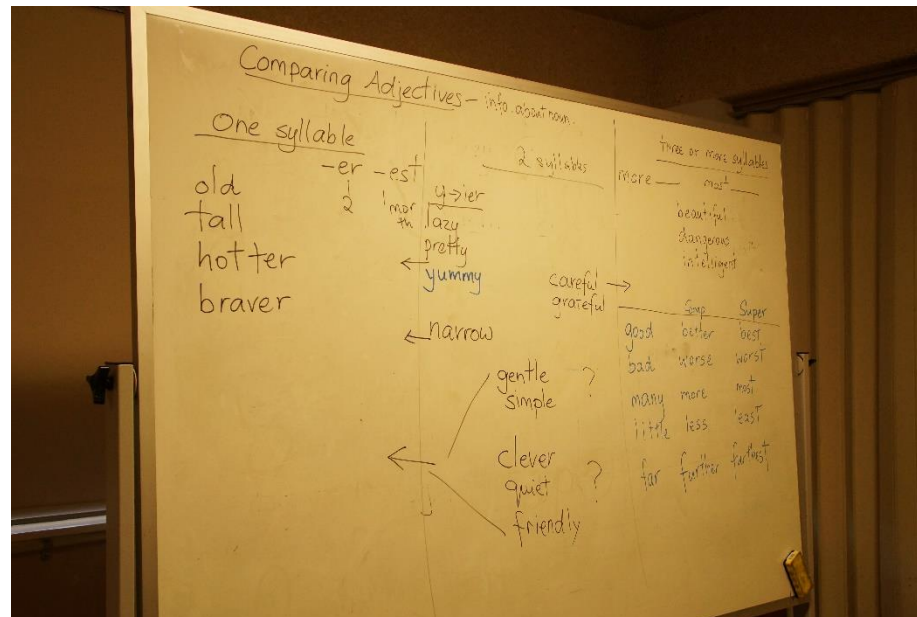 Comparing Adjectives - info. about noun.
One syllable
-er -est
2 mor
th
old
tall
hotter
braver
2 syllables
y→ier
lazy
pretty
← yummy
careful →
grateful
← narrow
gentle ?
simple
←
clever
quiet ?
friendly
three or more syllables
more — most —
beautiful
dangerous
intelligent
Comp Super
good better best
bad worse worst
many more most
little less least
far further furthest